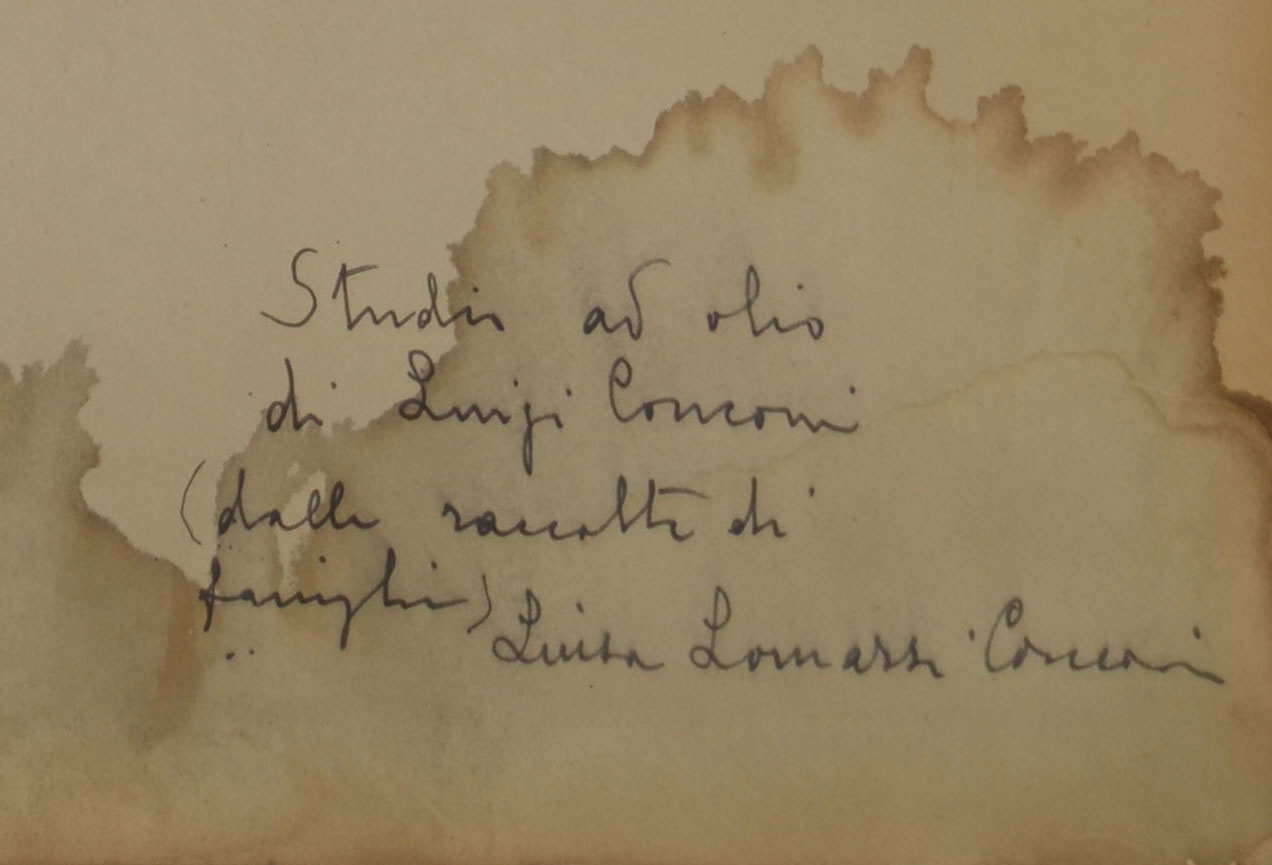 Studio ad olio
di Luigi Conconi
(dalle raccolte di
famiglia)
Luisa Lomazzi Conconi